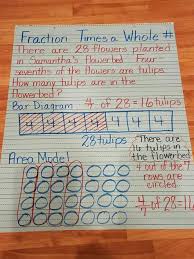 Fraction Times a Whole #
There are 28 flowers planted
in Samantha's flowerbed. Four
sevenths of the flowers are tulips.
How many tulips are in the
flowerbed?
Bar Diagram 4/7 of 28 = 16 tulips
4 4 4 4 4 4 4
28 tulips
There are
16 tulips in
the flowerbed
Area Model
4 out of the 7
rows are
circled
4/7 of 28 = 16